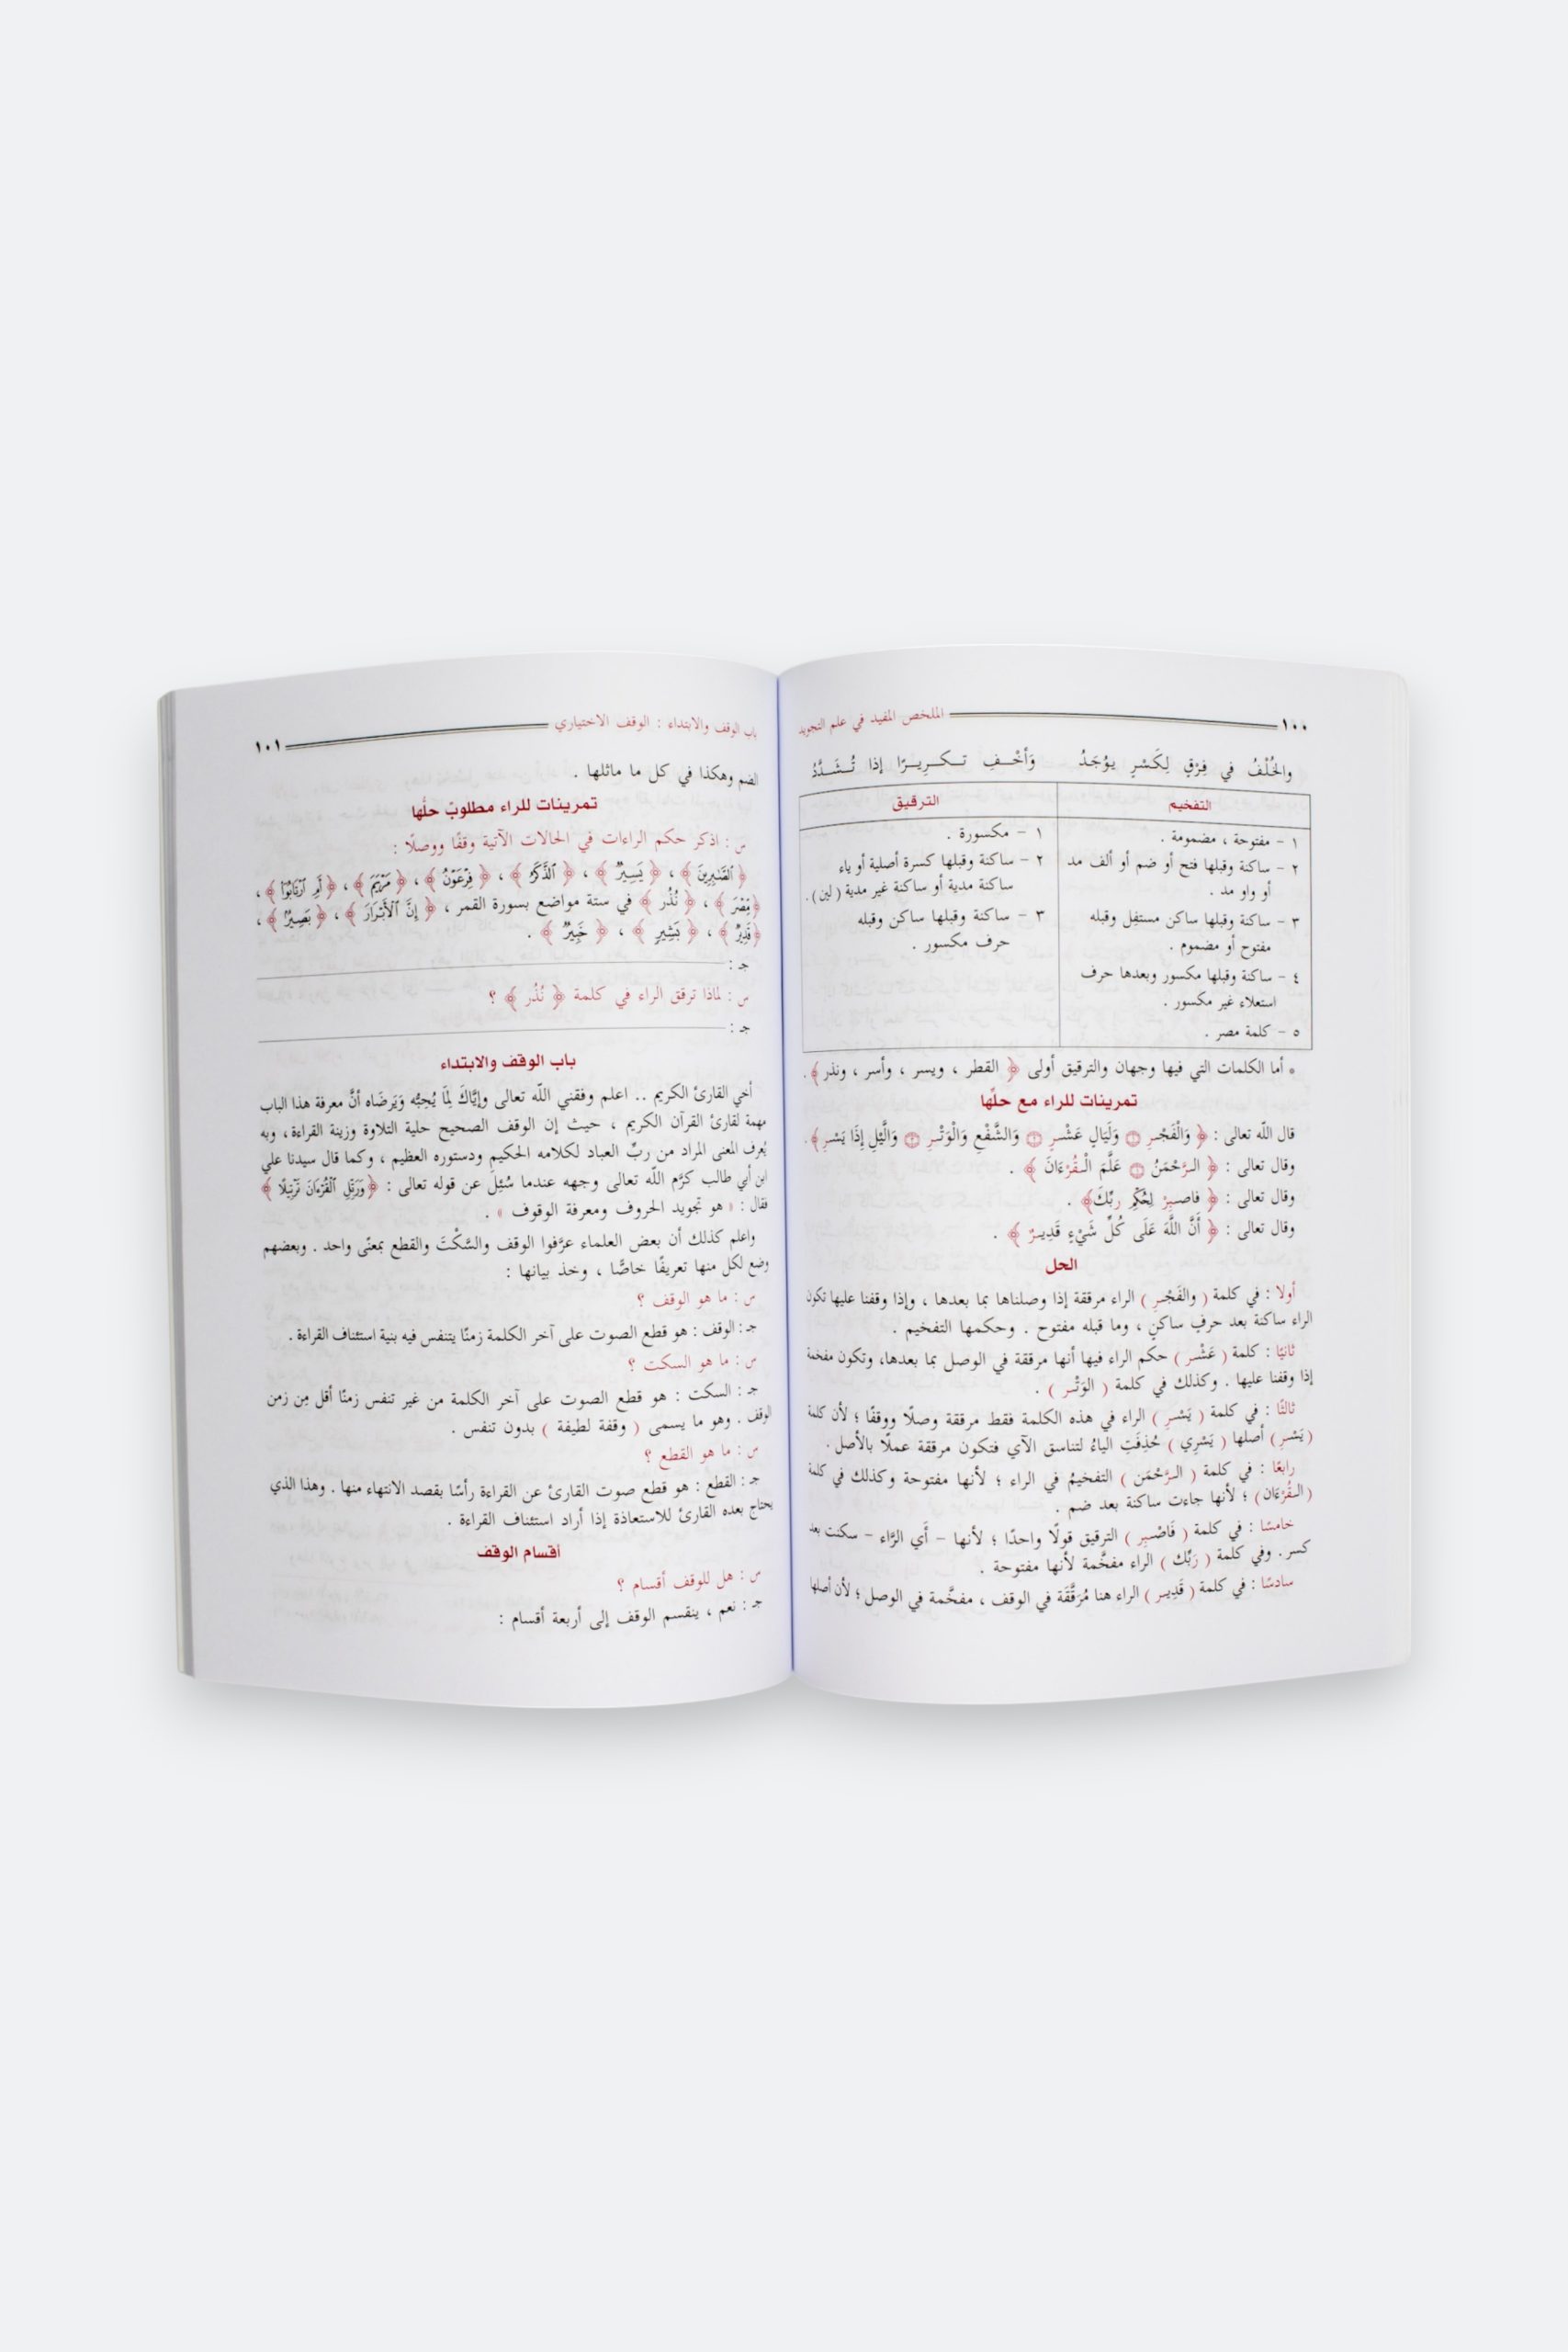 ١٠٠ الملخص المفيد في علم التجويد
والخُلْفُ في فِرْقٍ لِكَسْرٍ يوُجَدُ وَأخْـفِ تـكـرِيـرًا إذا تُـشَـدَّدُ
التفخيم الترقيق
١ - مفتوحة ، مضمومة .
٢ - ساكنة وقبلها فتح أو ضم أو ألف مد
أو واو مد .
٣ - ساكنة وقبلها ساكن مستفِل وقبله
مفتوح أو مضموم .
٤ - ساكنة وقبلها مكسور وبعدها حرف
استعلاء غير مكسور .
٥ - كلمة مصر .
١ - مكسورة .
٢ - ساكنة وقبلها كسرة أصلية أو ياء
ساكنة مدية أو ساكنة غير مدية ( لين ) .
٣ - ساكنة وقبلها ساكن وقبله
حرف مكسور .
* أما الكلمات التي فيها وجهان والترقيق أولى ﴿ القطر ، ويسر ، وأسر ، ونذر ﴾ .
تمرينات للراء مع حلِّها
قال اللّه تعالى : ﴿ وَالْفَجْـرِ ۝ وَلَيَالٍ عَشْـرٍ ۝ وَالشَّفْعِ وَالْوَتْـرِ ۝ وَالَّيْلِ إِذَا يَسْـرِ ﴾ .
وقال تعالى : ﴿ الـرَّحْمَنُ ۝ عَلَّمَ الْـقُرْءَانَ ﴾ .
وقال تعالى : ﴿ فاصـبِرْ لِحُكْمِ ربِّكَ ﴾ .
وقال تعالى : ﴿ أَنَّ اللَّهَ عَلَى كُلِّ شَيْءٍ قَدِيـرٌ ﴾ .
الحل
أولا : في كلمة ( والفَجْـرِ ) الراء مرققة إذا وصلناها بما بعدها ، وإذا وقفنا عليها تكون
الراء ساكنة بعد حرفٍ ساكنٍ ، وما قبله مفتوح . وحكمها التفخيم .
ثانيًا : كلمة ( عَشْـر ) حكم الراء فيها أنها مرققة في الوصل بما بعدها، وتكون مفخمة
إذا وقفنا عليها . وكذلك في كلمة ( الوَتْـر ) .
ثالثًا : في كلمة ( يَسْـرِ ) الراء في هذه الكلمة فقط مرققة وصلًا ووقفًا ؛ لأن كلمة
( يَسْـرِ ) أصلها ( يَسْرِي ) حُذِفَتِ الياءُ لتناسق الآي فتكون مرققة عملًا بالأصل .
رابعًا : في كلمة ( الـرَّحْمَن ) التفخيمُ في الراء ؛ لأنها مفتوحة وكذلك في كلمة
( الـقُرْءَان ) ؛ لأنها جاءت ساكنة بعد ضم .
خامسًا : في كلمة ( فَاصْـبِر ) الترقيق قولًا واحدًا ؛ لأنها - أَي الرَّاء - سكنت بعد
كسر . وفي كلمة ( رَبِّك ) الراء مفخَّمة لأنها مفتوحة .
سادسًا : في كلمة ( قَدِيـر ) الراء هنا مُرَقَّقَة في الوقف ، مفخَّمة في الوصل ؛ لأن أصلها
باب الوقف والابتداء : الوقف الاختياري ١٠١
الضم وهكذا في كل ما ماثلها .
تمرينات للراء مطلوبٌ حلُّها
س : اذكر حكم الراءات في الحالات الآتية وقفًا ووصلًا :
﴿ ٱلصَّٰبِرِينَ ﴾ ، ﴿ يَسِيرٌ ﴾ ، ﴿ ٱلذَّكَرُ ﴾ ، ﴿ فِرْعَوْنُ ﴾ ، ﴿ مَرْيَمَ ﴾ ، ﴿ أَمِ ٱرْتَابُوٓا۟ ﴾ ،
﴿ مِصْرَ ﴾ ، ﴿ نُذُرِ ﴾ في ستة مواضع بسورة القمر ، ﴿ إِنَّ ٱلْأَبْرَارَ ﴾ ، ﴿ بَصِيرٌ ﴾ ،
﴿ قَدِيرٌ ﴾ ، ﴿ بَشِيرٍ ﴾ ، ﴿ خَبِيرٌ ﴾ .
جـ :
س : لماذا ترقق الراء في كلمة ﴿ نُذُرِ ﴾ ؟
جـ :
باب الوقف والابتداء
أخي القارئ الكريم .. اعلم وفقني اللّه تعالى وإيَّاكَ لِمَا يُحِبُّه وَيَرضَاه أنَّ معرفة هذا الباب
مهمة لقارئ القرآن الكريم ، حيث إن الوقف الصحيح حلية التلاوة وزينة القراءة ، وبه
يُعرف المعنى المراد من ربِّ العباد لكلامه الحكيم ودستوره العظيم ، وكما قال سيدنا علي
ابن أبي طالب كرَّم اللّه تعالى وجهه عندما سُئِلَ عن قوله تعالى : ﴿ وَرَتِّلِ ٱلْقُرْءَانَ تَرْتِيلًا ﴾
فقال : « هو تجويد الحروف ومعرفة الوقوف » .
واعلم كذلك أن بعض العلماء عرَّفوا الوقف والسَّكْتَ والقطع بمعنًى واحد . وبعضهم
وضع لكل منها تعريفًا خاصًّا ، وخذ بيانها :
س : ما هو الوقف ؟
جـ : الوقف : هو قطع الصوت على آخر الكلمة زمنًا يتنفس فيه بنية استئناف القراءة .
س : ما هو السكت ؟
جـ : السكت : هو قطع الصوت على آخر الكلمة من غير تنفس زمنًا أقل مِن زمن
الوقف . وهو ما يسمى ( وقفة لطيفة ) بدون تنفس .
س : ما هو القطع ؟
جـ : القطع : هو قطع صوت القارئ عن القراءة رأسًا بقصد الانتهاء منها . وهذا الذي
يحتاج بعده القارئ للاستعاذة إذا أراد استئناف القراءة .
أقسام الوقف
س : هل للوقف أقسام ؟
جـ : نعم ، ينقسم الوقف إلى أربعة أقسام :